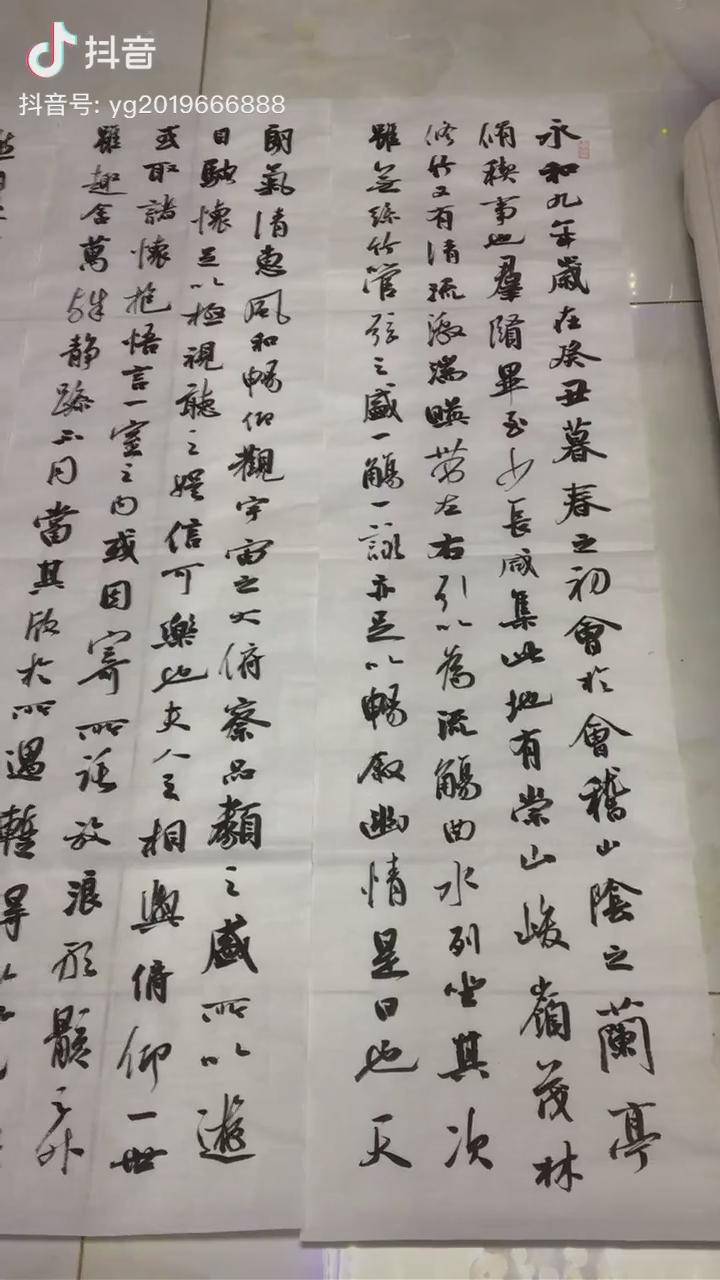 抖音
抖音号: yg2019666888
永和九年歲在癸丑暮春之初會於會稽山陰之蘭亭
脩稧事也羣賢畢至少長咸集此地有崇山峻嶺茂林
修竹又有清流激湍暎帶左右引以為流觴曲水列坐其次
雖無絲竹管弦之盛一觴一詠亦足以暢叙幽情是日也天
朗氣清惠風和暢仰觀宇宙之大俯察品類之盛所以遊
目騁懷足以極視聽之娱信可樂也夫人之相與俯仰一世
或取諸懷抱悟言一室之内或因寄所託放浪形骸之外
雖趣舍萬殊静躁不同當其欣於所遇暫得於